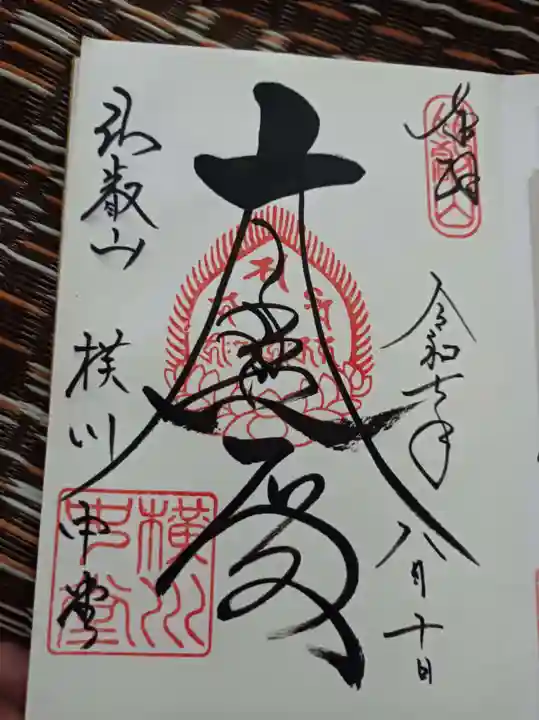 奉拝
令和七年八月十日
大悲殿
比叡山 横川中堂
横川中堂